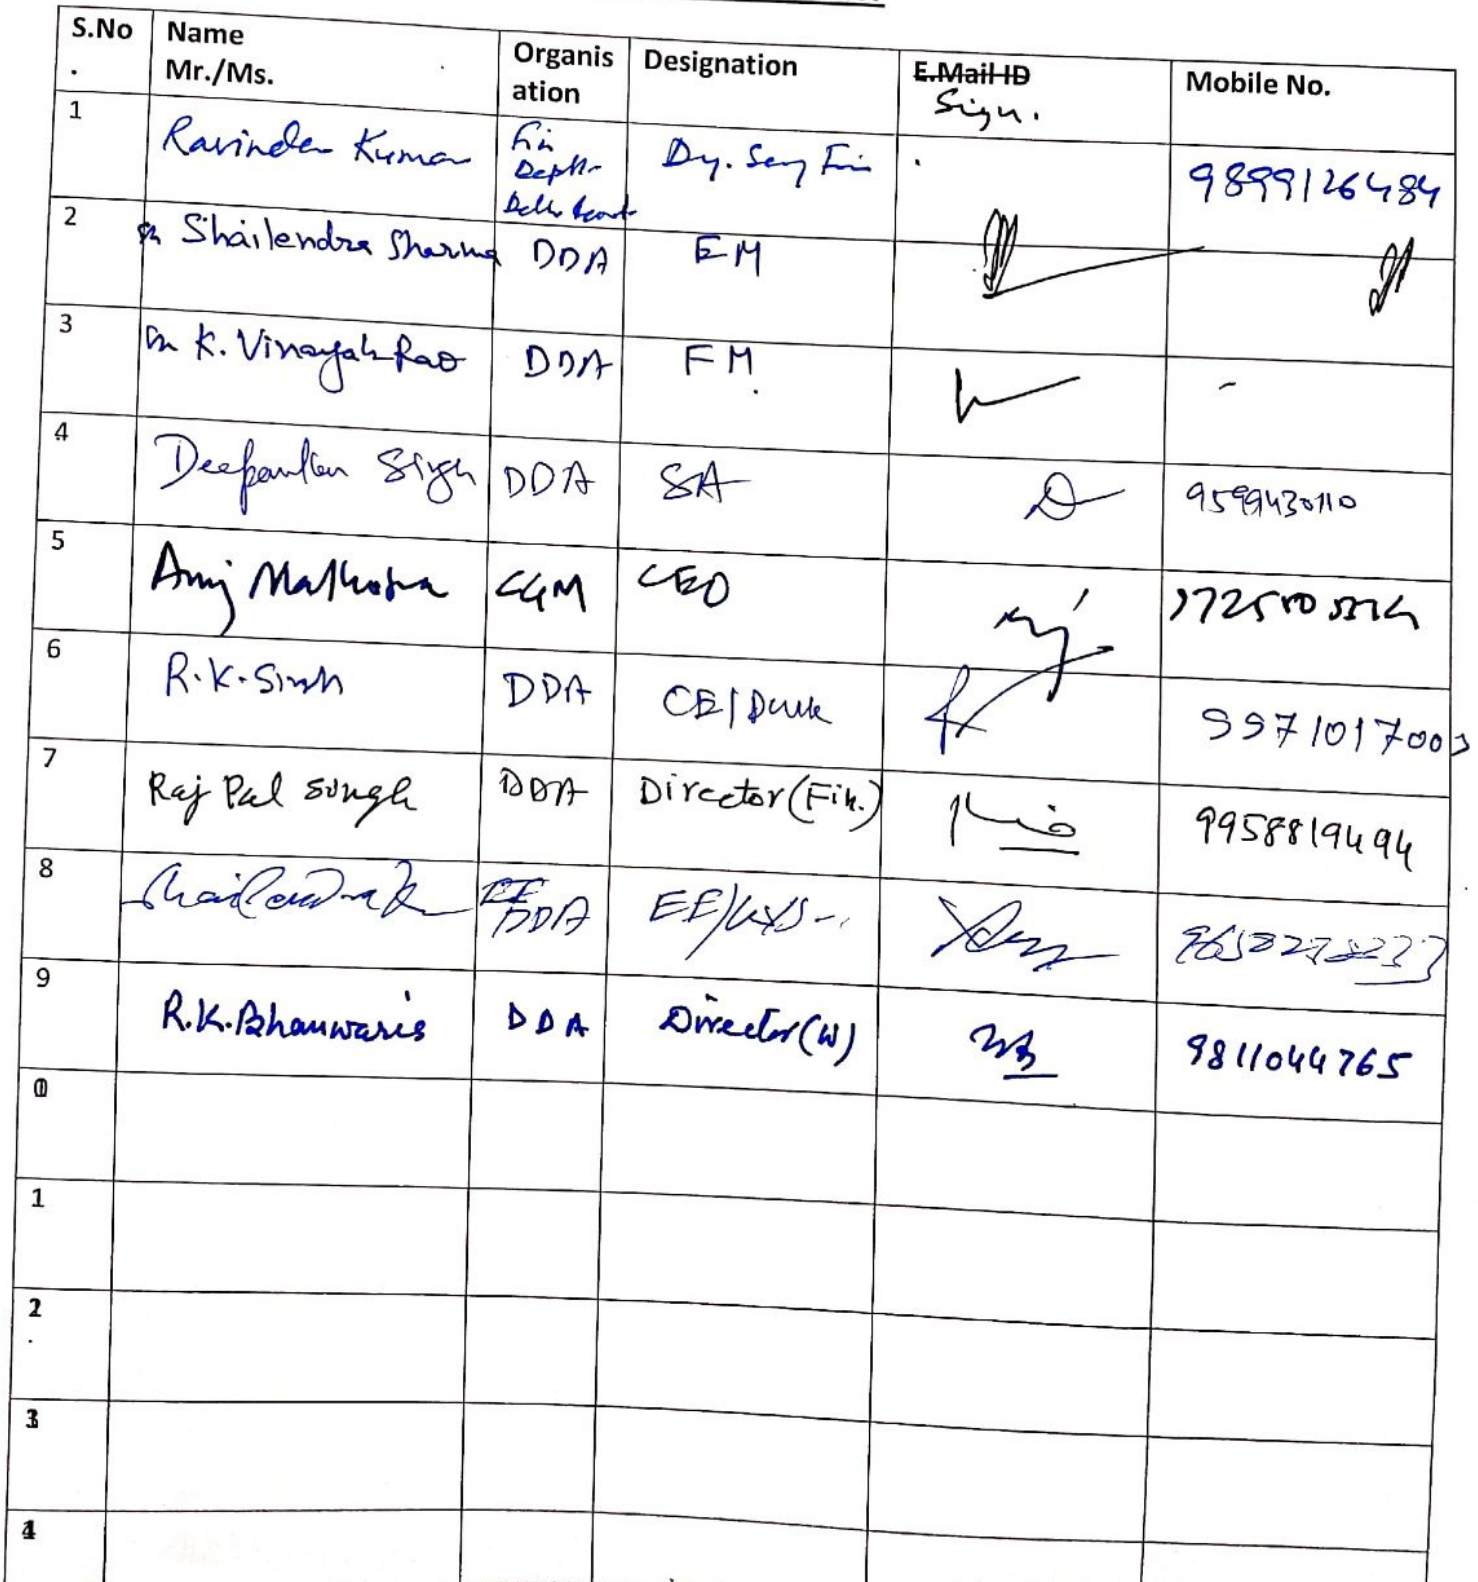 S.No Name Organis Designation E.Mail ID Mobile No.
. Mr./Ms. ation Sign.
1 Ravinder Kumar Fin Deptt. Dy. Secy Fin 9899126484
2 Sh Shailendra Sharma DDA EM
3 Sh K. Vinayak Rao DDA FM -
4 Deepankar Singh DDA SA 9599430110
5 Anuj Malhotra CEO
6 R.K. Singh DDA CE/Dwk 9971017003
7 Raj Pal Singh DDA Director (Fin.) 9958819494
8 DDA
9 R.K. Bhanwaria DDA Director (W) 9811044765
0
1
2
.
3
4